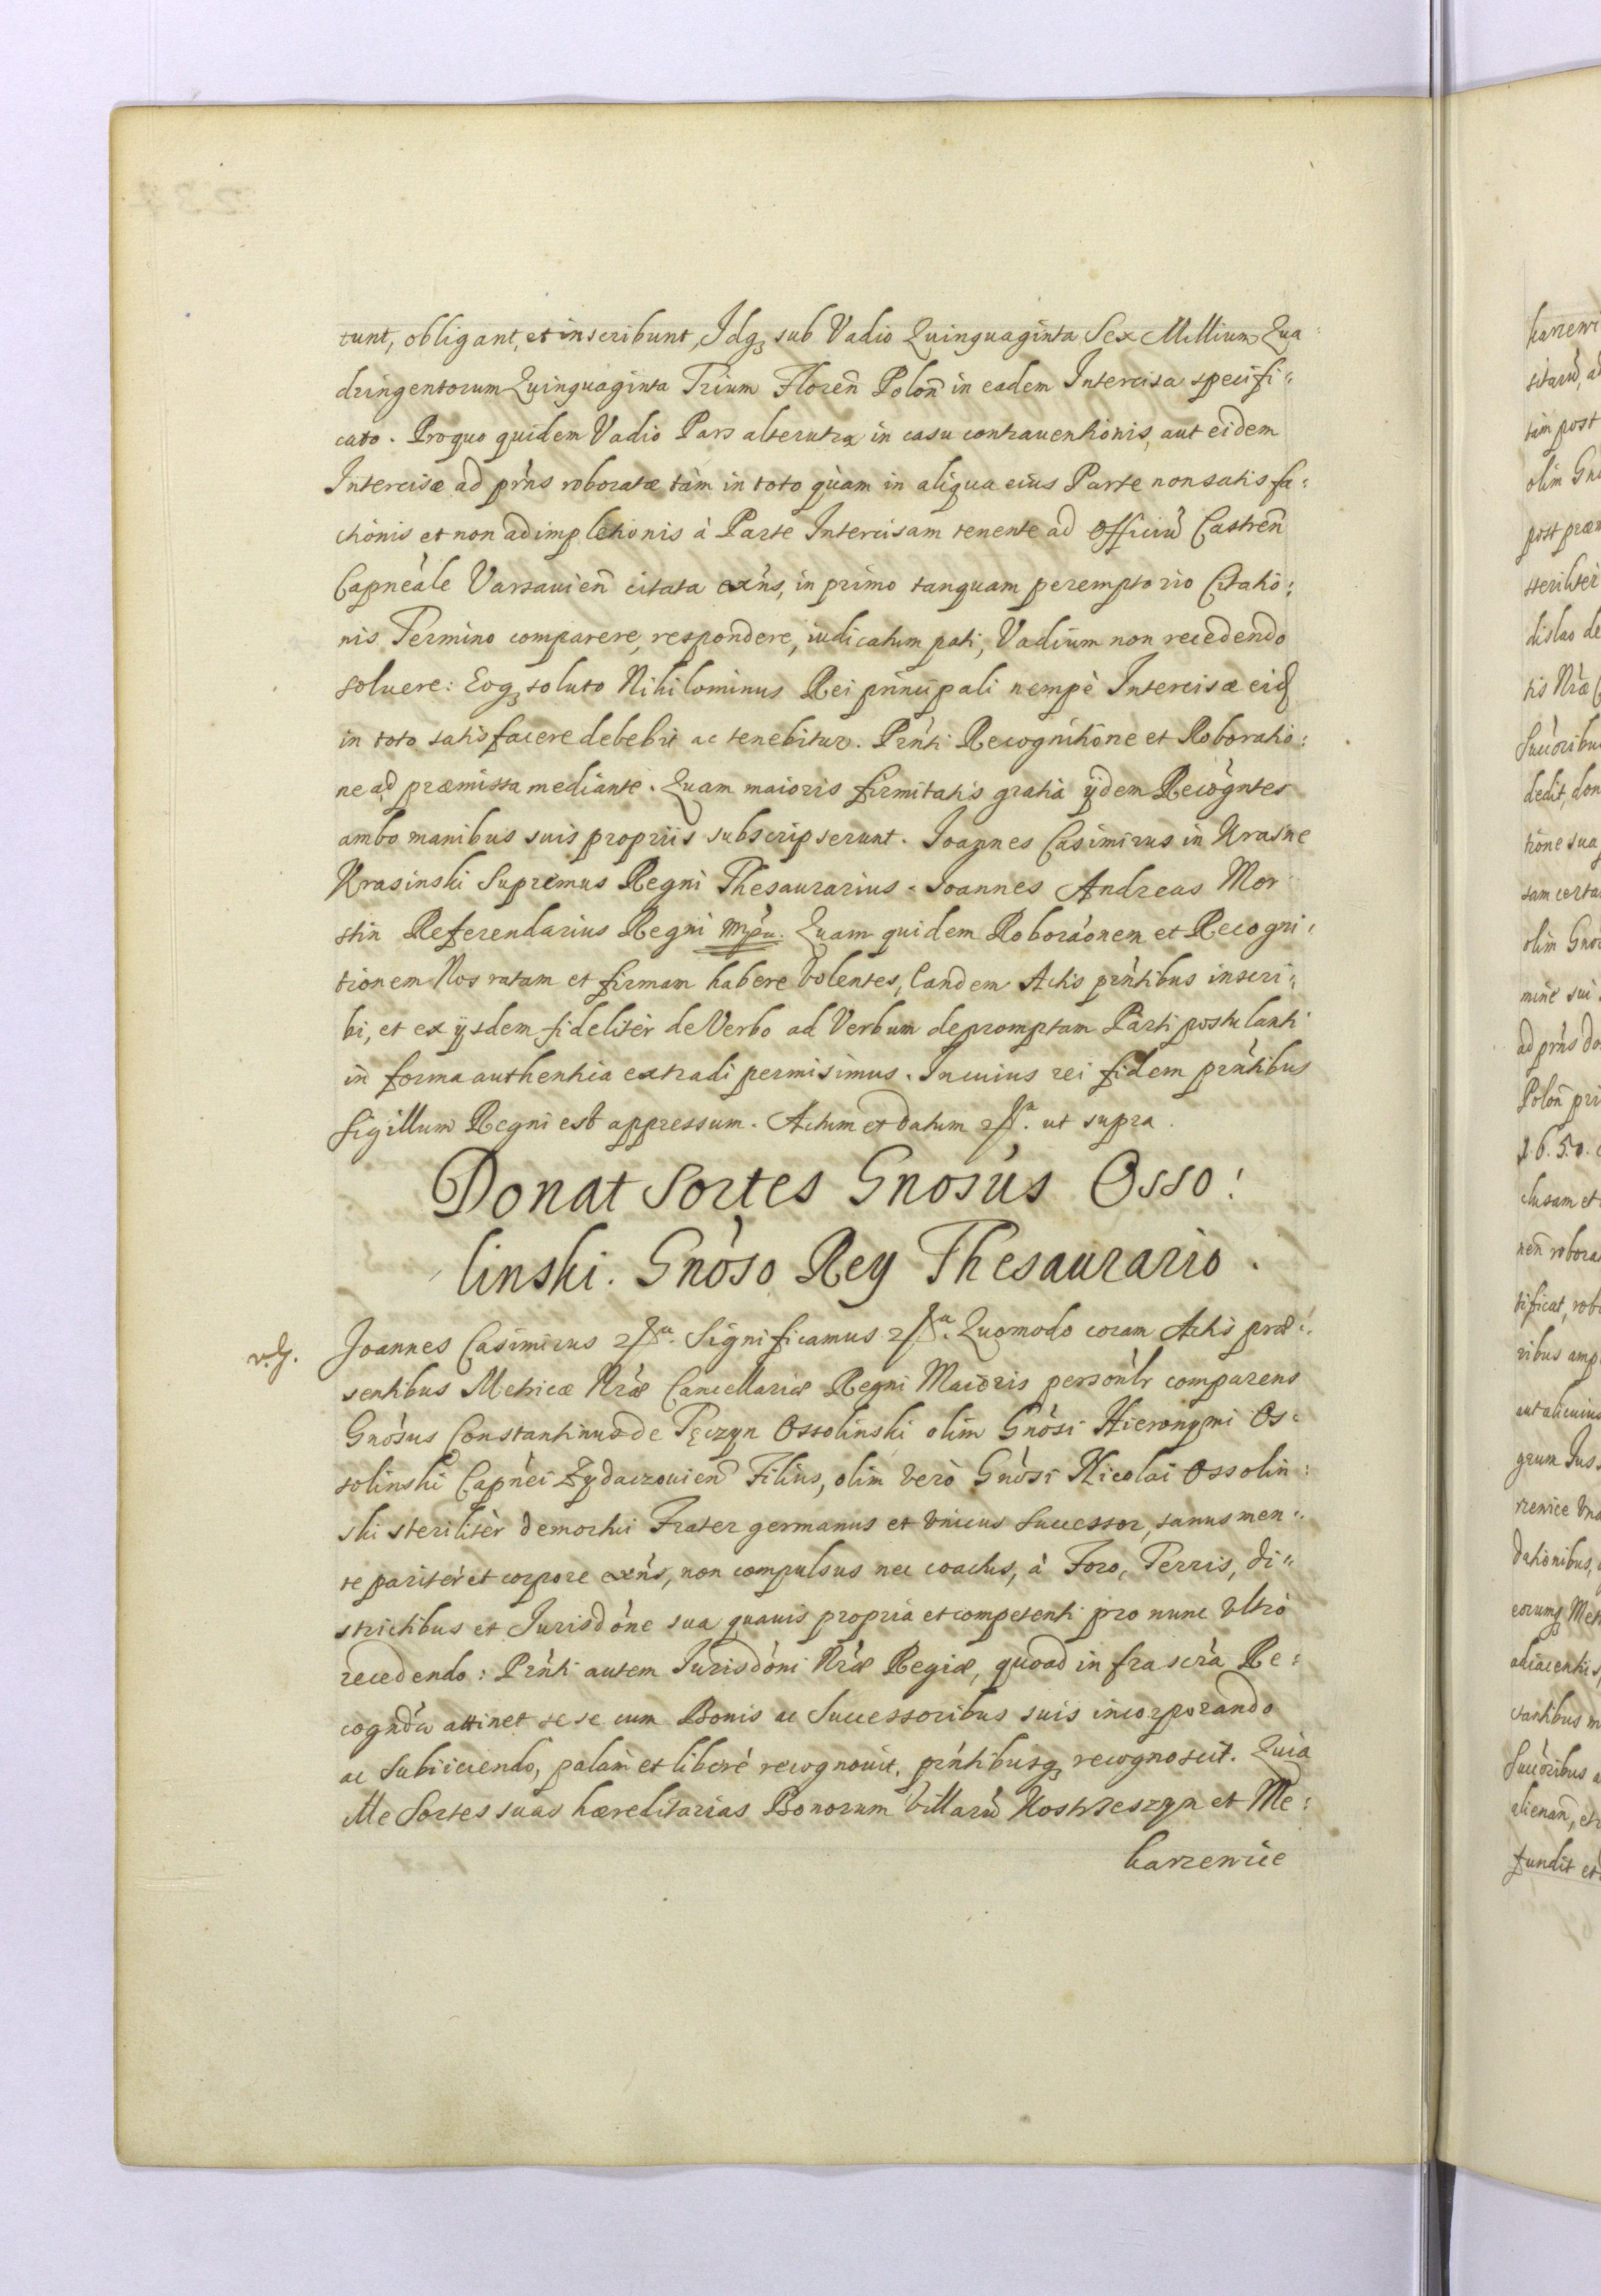 tunt, obligant, et inscribunt, Idq₃ sub Vadio Quinquaginta Sex Millium Qua:
dringentorum Quinquaginta Trium Floren̄ Polon̄ in eadem Intercisa specifi:
cato. Pro quo quidem Vadio Pars alterutra in casu contrauentionis, aut eidem
Intercisæ ad prńs roboratæ tàm in toto quàm in aliqua eius Parte non satis fa:
ctionis et non adimpletionis à Parte Intercisam tenente ad Officiū Castren̄
Capneále Varsauien̄ citata exńs, in primo tanquam peremptorio Citatio:
nis Termino comparere, respondere, iudicatum pati, Vadium non recedendo
soluere: Eoq₃ soluto Nihilominus Rei principali nempè Intercisæ eid̄
in toto satisfacere debebit ac tenebitur. Prńti Recognitione et Roboratio:
ne ad præmissa mediante. Quam maioris firmitatis gratia ijdem Recógntes
ambo manibus suis propriis subscripserunt. Joannes Casimirus in Krasne
Krasinski Supremus Regni Thesaurarius. Joannes Andreas Mor
stin Referendarius Regni mpu. Quam quidem Roboráonem et Recogni:
tionem Nos ratam et firmam habere volentes, Eandem Actis prńtibus inscri:
bi, et ex ijsdem fidelitèr de Verbo ad Verbum depromptam Parti postulanti
in forma authentica extradi permisimus. In cuius rei fidem prńtibus
Sigillum Regni est appressum. Actum et datum ut supra.
Donat Sortes Gnosús Osso:
linski. Gnóso Rey Thesaurario.
Joannes Casimirus Significamus Quomodo coram Actis præ:
sentibus Metricæ Nræ Cancellariæ Regni Maioris persónlr comparens
Gnósus Constantinus de Tęczyn Ossolinski olim Gnósi Hieronymi Os:
solinski Capnéi Zydaczouien̄ Filius, olim verò Gnósi Nicolai Ossolin:
ski sterilitèr demortui Frater germanus et vnicus Successor, sanus men:
te paritèr et corpore exńs, non compulsus nec coactus, à Foro, Terris, di:
strictibus et Jurisdóne sua quauis propria et competenti pro nunc vltrò
recedendo: Prńti autem Jurisdóni Nræ Regiæ, quoad infrascra Re:
cognda attinet sese cum Bonis ac Successoribus suis incorporando
ac Subiiciendo, palàm et liberè recognouit, prńtibusq₃ recognoscit. Quia
Ille Sortes suas hæreditarias Bonorum Villarū Kostrzeszyn et Me:
karzewice